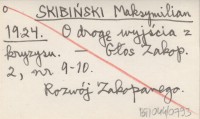 SKIBIŃSKI Maksymilian
1924. O drogę wyjścia z
kryzysu. — Głos Zakop.
2, nr 9-10.
Rozwój Zakopanego.